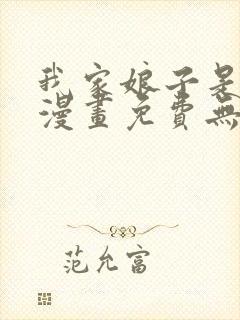 我家娘子是
漫畫免費無
范允富